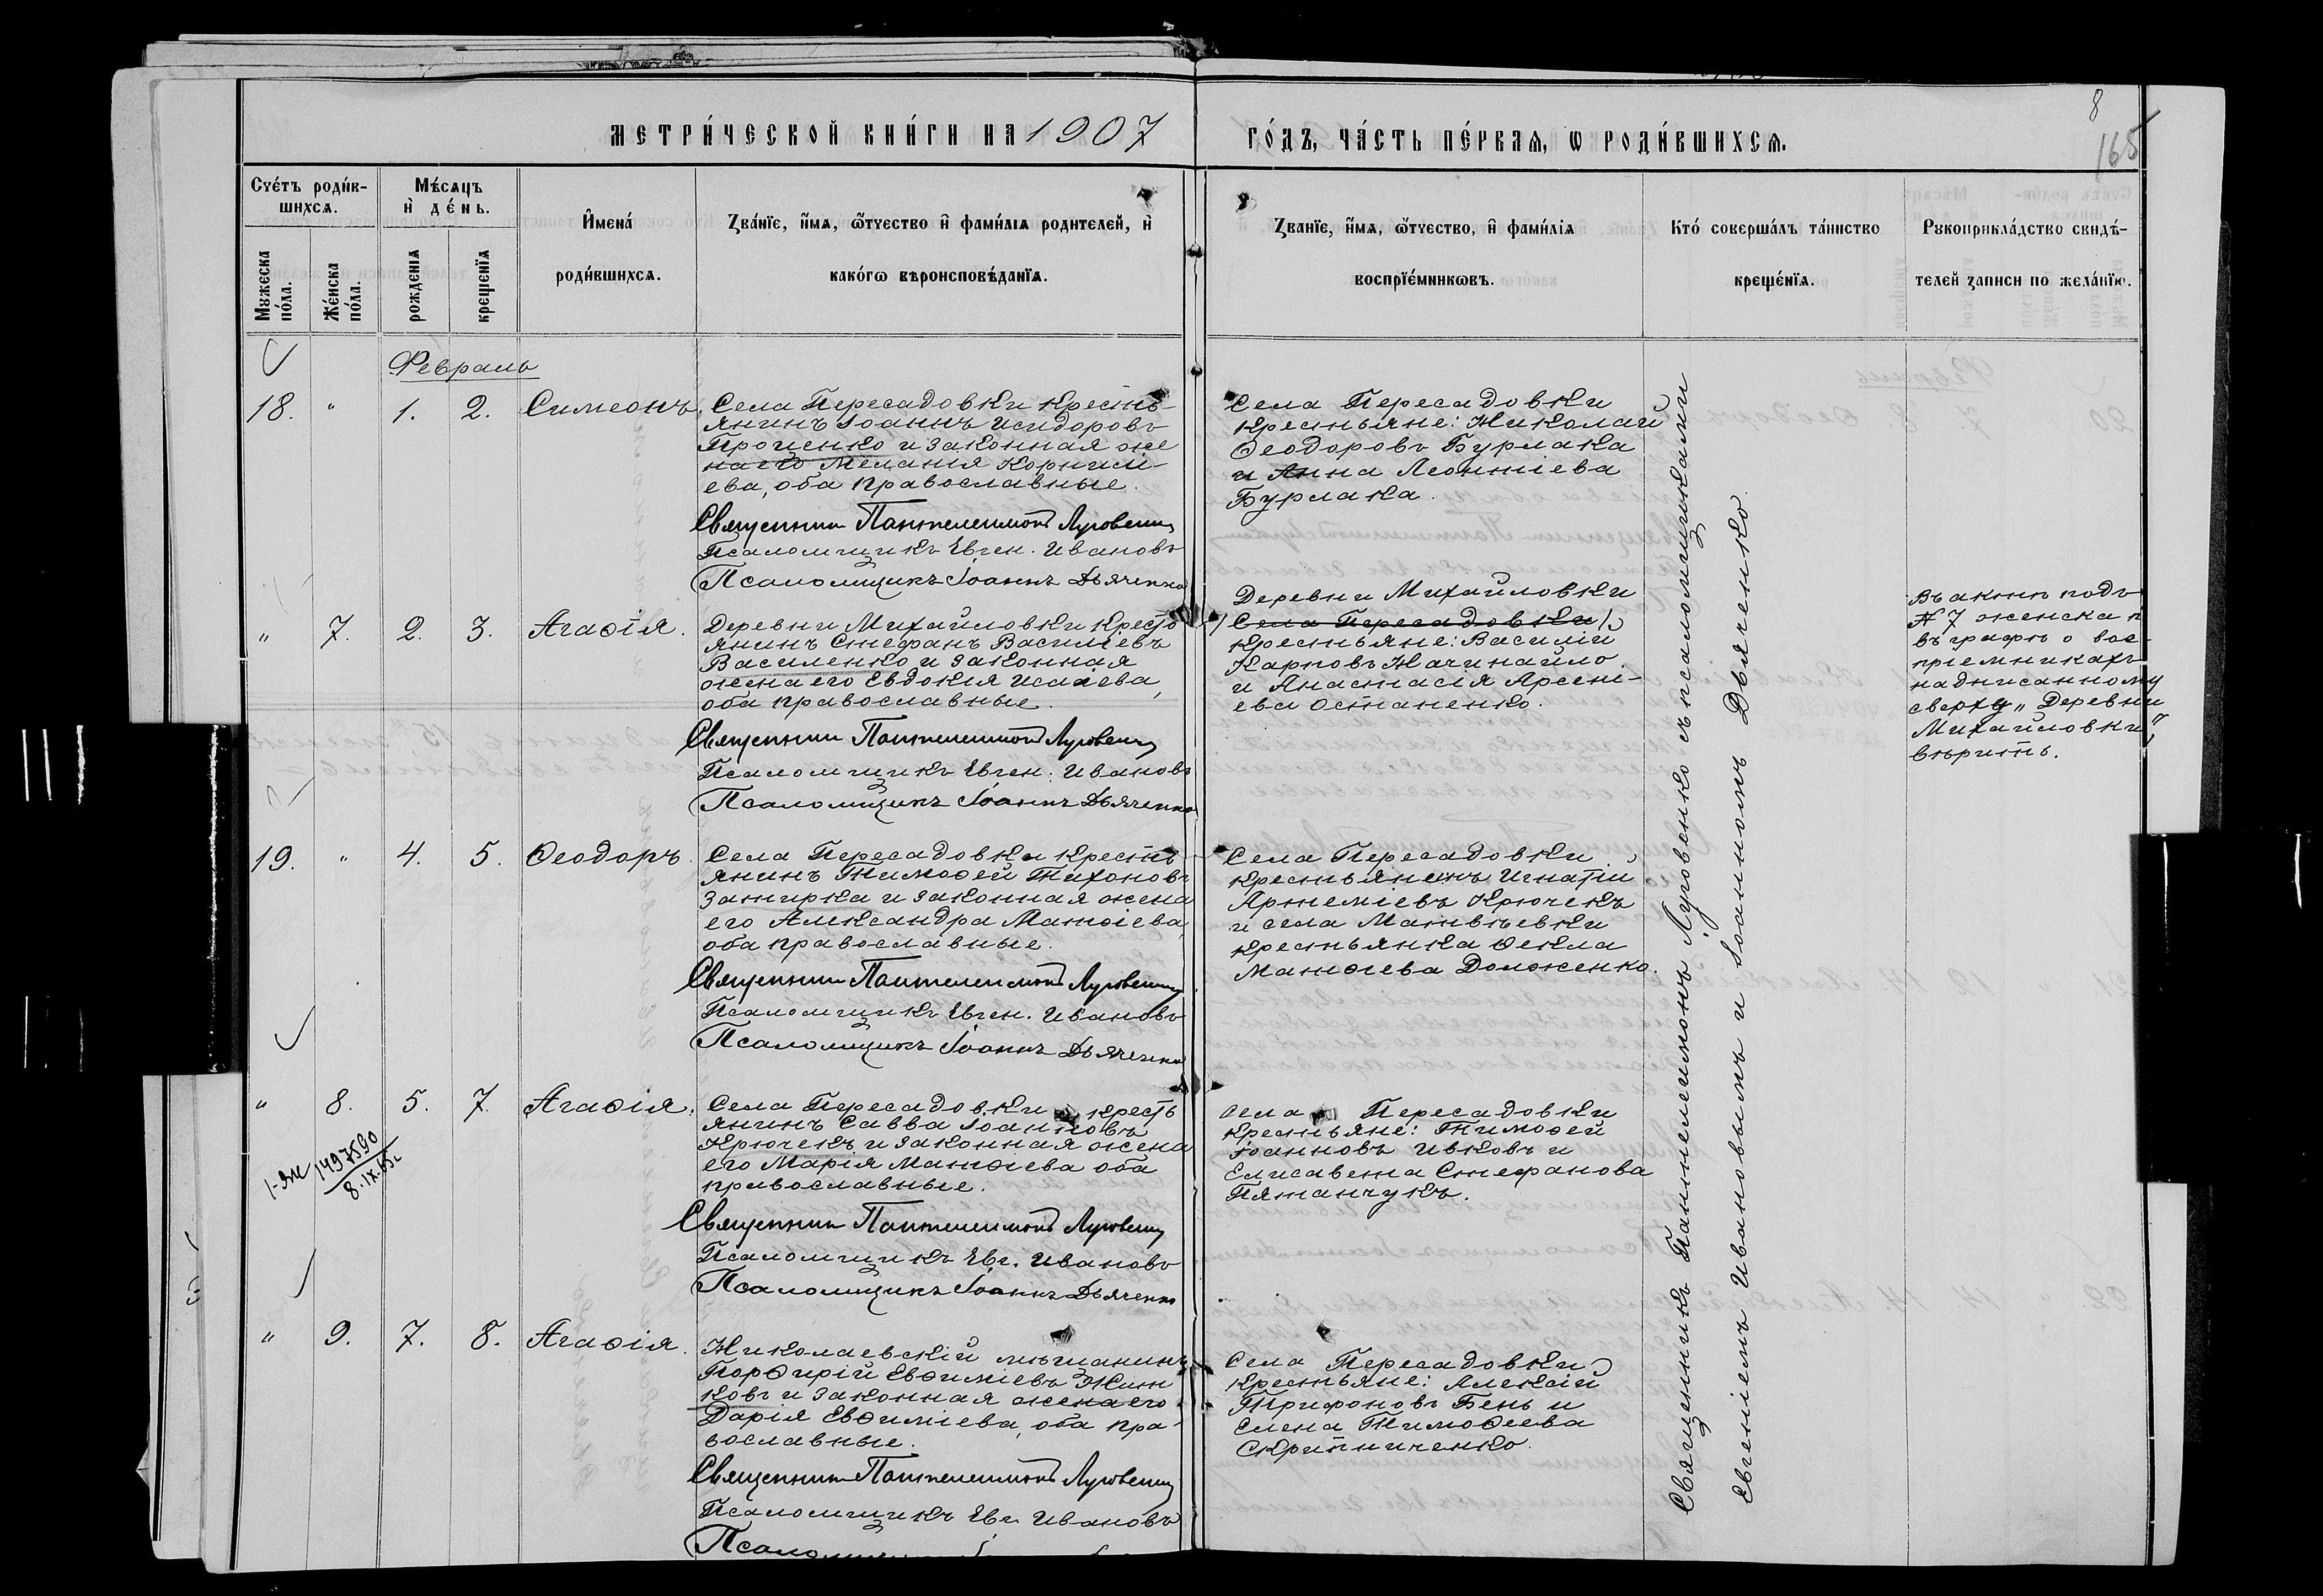 МЕТРИ́ЧЕСКОЙ КНИ́ГИ НА 1907 ГО́ДЪ, ЧА́СТЬ ПЕ́РВАѦ, Ѡ РОДИ́ВШИХСѦ.
8
165
Сче́тъ роди́в-
шихсѧ.
Мꙋжеска по́ла.
Же́нска по́ла.
Мѣ́сѧцъ
и҆ де́нь.
рожденїѧ
крещенїѧ
И҆мена́
роди́вшихсѧ.
Ꙁва́нїе, и҆́мѧ, ѻ҆́тчество и҆ фамилїѧ родителей, и҆
како́гѡ вѣроисповѣ́данїѧ.
Ꙁванїе, и҆́мѧ, ѻ҆́тчество, и҆ фами́лїѧ
воспрїе́мникѡвъ.
Кто́ соверша́лъ та́инство
креще́нїѧ.
Рꙋкоприкла́дство свидѣ́-
телей записи по жела́нїю.
Февраль
18. " 1. 2. Симеонъ.
Села Пересадовки кресть-
янинъ Іоаннъ Исидоровъ
Проценко и законная же
на его Мелания Корнили-
ева, оба православные.
Священник Пантелеимонъ Луговенко
Псаломщикъ Евген. Ивановъ
Псаломщикъ Іоаннъ Дьяченко
Села Пересадовки
крестьяне: Николай
Ѳеодоровъ Бурлака
и Анна Леонтіева
Бурлака.
" 7. 2. 3. Агаѳія.
Деревни Михайловки кресть
янинъ Стефанъ Василіевъ
Василенко и законная
жена его Евдокія Исаіева,
оба православные.
Священник Пантелеимонъ Луговенко
Псаломщикъ Евген. Ивановъ
Псаломщикъ Іоаннъ Дьяченко
Деревни Михайловки
Села Пересадовки
крестьяне: Василій
Карповъ Начинайло
и Анастасія Арсені-
ева Остапенко.
Въ актѣ подъ
№ 7 женска п
въ графѣ о вос-
приемникахъ
надписанному
сверху „Деревни
Михайловки"
вѣрить.
19. " 4. 5. Ѳеодоръ.
Села Пересадовки кресть
янинъ Тимоѳей Тихоновъ
Затирка и законная жена
его Александра Матѳіева,
оба православные.
Священник Пантелеимонъ Луговенко
Псаломщикъ Евген. Ивановъ
Псаломщикъ Іоаннъ Дьяченко
Села Пересадовки
крестьянинъ Игнатій
Артеміевъ Крючекъ
и села Матвѣевки
крестьянка Ѳекла
Матѳіева Долженко.
" 8. 5. 7. Агаѳія.
Села Пересадовки кресть
янинъ Савва Іоанновъ
Крючекъ и законная жена
его Марія Матѳіева оба
православные.
Священник Пантелеимонъ Луговенко
Псаломщикъ Евг. Ивановъ
Псаломщикъ Іоаннъ Дьяченко
Села Пересадовки
крестьяне: Тимоѳей
Іоанновъ Ивковъ и
Елисавета Стефанова
Пятанчукъ.
1-ЯИ 1497590
8.IX.65г
" 9. 7. 8. Агаѳія.
Николаевскій мѣщанинъ
Порѳирій Евѳиміевъ Жит
ковъ и законная жена его
Дарія Евѳиміева, оба пра-
вославные.
Священник Пантелеимонъ Луговенко
Псаломщикъ Евг. Ивановъ
Села Пересадовки
крестьяне: Алексій
Трифоновъ Бень и
Елена Тимоѳеева
Скрипниченко.
Священникъ Пантелеимонъ Луговенко съ псаломщиками
Евгеніемъ Ивановымъ и Іоанномъ Дьяченко.